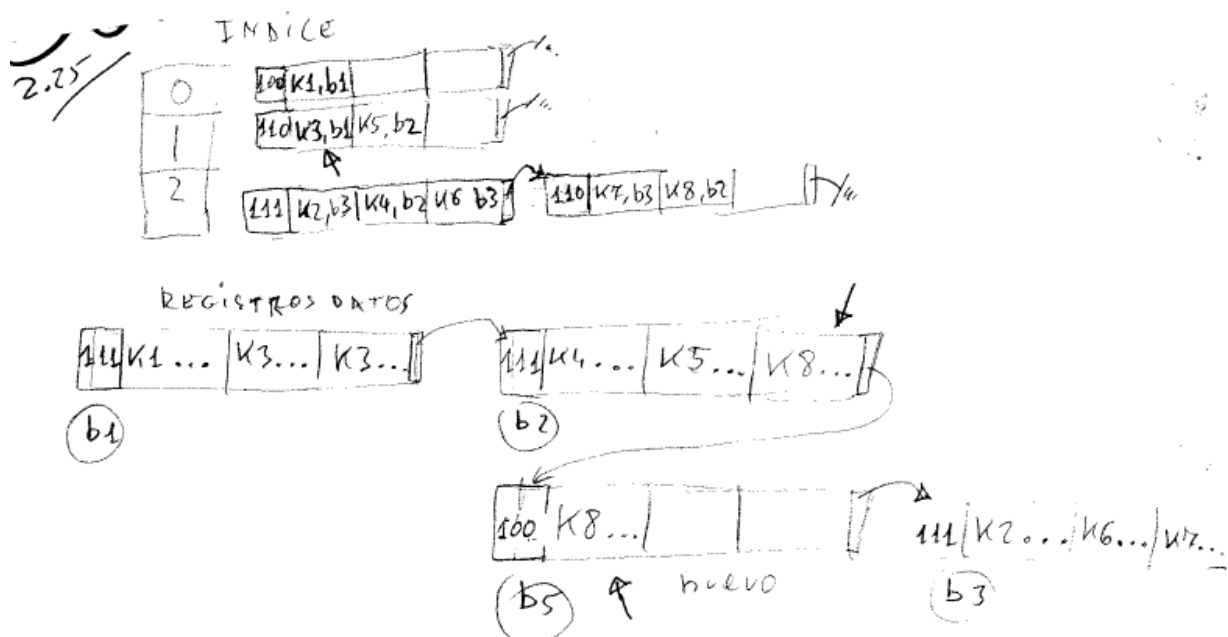 2.25
INDICE
0 100 K1,b1
1 110 K3,b1 K5,b2
2 111 K2,b3 K4,b2 K6 b3 110 K7,b3 K8,b2
REGISTROS DATOS
111 K1... K3... K3... 111 K4... K5... K8...
b1 b2
100 K8... 111 K2... K6... K7...
b5 nuevo b3